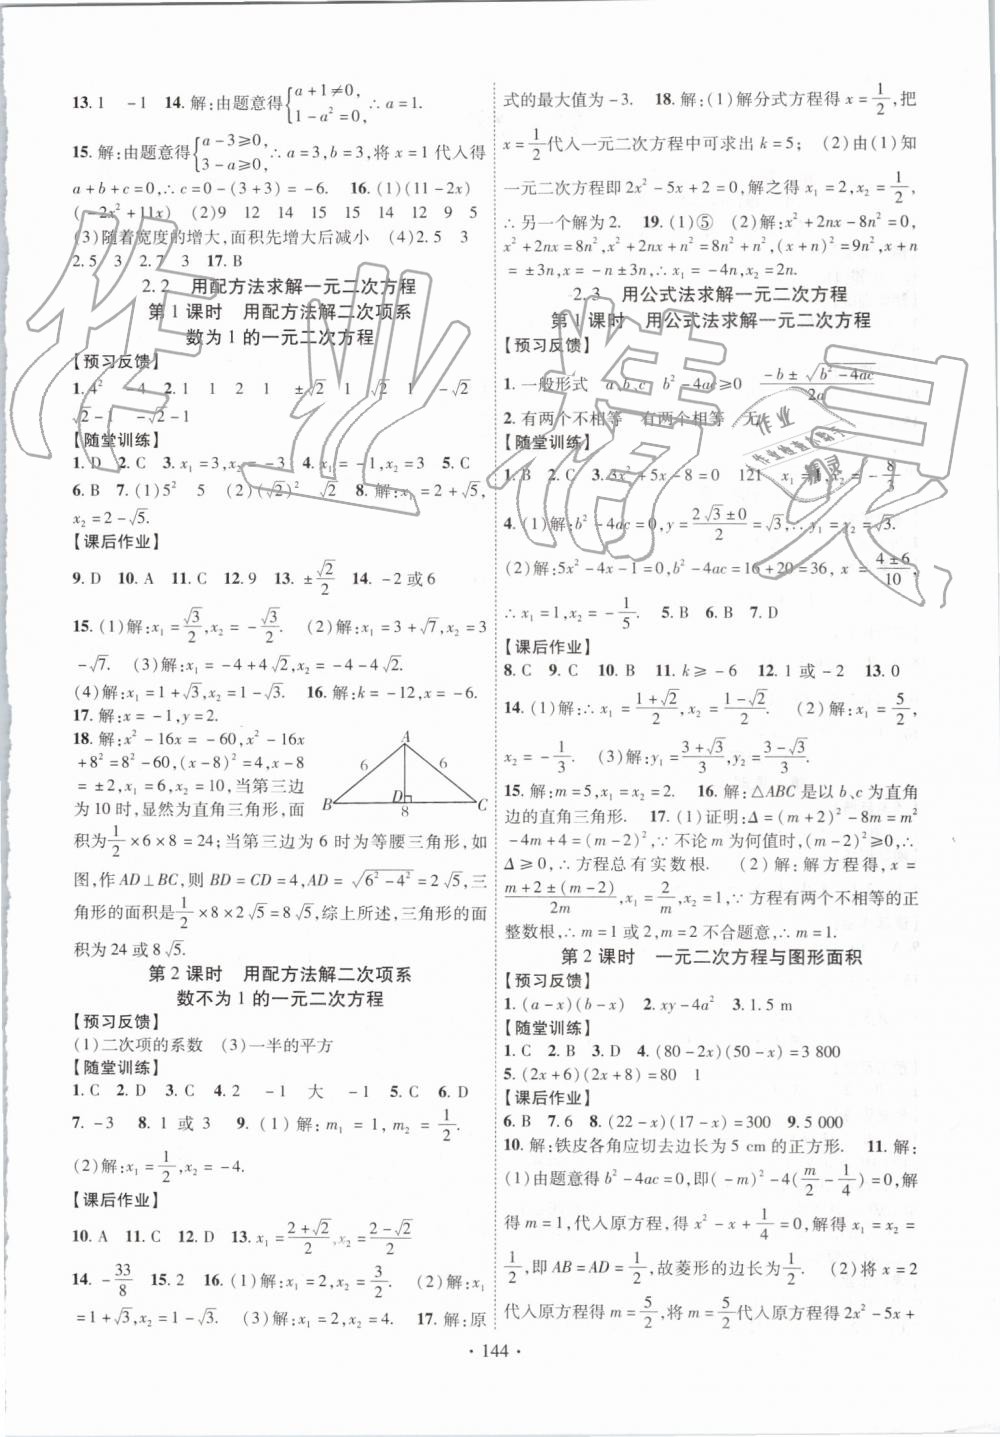 13. 1　-1　14. 解:由题意得{a+1≠0, 1-a²=0, ∴a=1.
15. 解:由题意得{a-3≥0, 3-a≥0, ∴a=3,b=3,将 x=1 代入得
a+b+c=0,∴c=0-(3+3)=-6.　16. (1)(11-2x)
(-2x²+11x)　(2)9　12　14　15　14　12　9　5
(3)随着宽度的增大,面积先增大后减小　(4)2.5　3
2.5　3　2.7　3　17. B
2.2　用配方法求解一元二次方程
第 1 课时　用配方法解二次项系
数为 1 的一元二次方程
【预习反馈】
1. 4²　4　2. 1　1　2　1　±√2　1　√2　1　-√2
√2-1　-√2-1
【随堂训练】
1. D　2. C　3. x₁=3,x₂=-3　4. x₁=-1　5. C
6. B　7. (1)5²　5　(2)(√2)²　√2　8. 解:x₁=2+√5,
x₂=2-√5.
【课后作业】
9. D　10. A　11. C　12. 9　13. ±√2/2　14. -2或6
15. (1)解:x₁=√3/2,x₂=-√3/2.　(2)解:x₁=3+√7,x₂=3
-√7.　(3)解:x₁=-4+4√2,x₂=-4-4√2.
(4)解:x₁=1+√3,x₂=1-√3.　16. 解:k=-12,x=-6.
17. 解:x=-1,y=2.
18. 解:x²-16x=-60,x²-16x
+8²=8²-60,(x-8)²=4,x-8
=±2,x₁=6,x₂=10,当第三边
为 10 时,显然为直角三角形,面
A
6　6
B　D　8　C
积为1/2×6×8=24;当第三边为 6 时为等腰三角形,如
图,作 AD⊥BC,则 BD=CD=4,AD=√(6²-4²)=2√5,三
角形的面积是1/2×8×2√5=8√5,综上所述,三角形的面
积为 24 或8√5.
第 2 课时　用配方法解二次项系
数不为 1 的一元二次方程
【预习反馈】
(1)二次项的系数　(3)一半的平方
【随堂训练】
1. C　2. D　3. C　4. 2　-1　大　-1　5. C　6. D
7. -3　8. 1 或 3　9. (1)解:m₁=1,m₂=1/2.
(2)解:x₁=1/2,x₂=-4.
【课后作业】
10. A　11. C　12. D　13. x₁=(2+√2)/2,x₂=(2-√2)/2
14. -33/8　15. 2　16. (1)解:x₁=2,x₂=3/2.　(2)解:x₁
=1+√3,x₂=1-√3.　(3)解:x₁=2,x₂=4.　17. 解:原
式的最大值为-3.　18. 解:(1)解分式方程得 x=1/2,把
x=1/2代入一元二次方程中可求出 k=5;　(2)由(1)知
一元二次方程即 2x²-5x+2=0,解之得 x₁=2,x₂=1/2,
∴另一个解为 2.　19. (1)⑤　(2)解:x²+2nx-8n²=0,
x²+2nx=8n²,x²+2nx+n²=8n²+n²,(x+n)²=9n²,x+n
=±3n,x=-n±3n,∴x₁=-4n,x₂=2n.
2.3　用公式法求解一元二次方程
第 1 课时　用公式法求解一元二次方程
【预习反馈】
1. 一般形式　a、b、c　b²-4ac≥0　(-b±√(b²-4ac))/2a
2. 有两个不相等　有两个相等　无
【随堂训练】
1. B　2. C　3. 3x²+5x-8=0　121　x₁=1,x₂=-8/3
4. (1)解:b²-4ac=0,y=(2√3±0)/2=√3,∴y₁=y₂=√3.
(2)解:5x²-4x-1=0,b²-4ac=16+20=36,x=(4±6)/10,
∴x₁=1,x₂=-1/5.　5. B　6. B　7. D
【课后作业】
8. C　9. C　10. B　11. k≥-6　12. 1 或-2　13. 0
14. (1)解:∴x₁=(1+√2)/2,x₂=(1-√2)/2.　(2)解:x₁=5/2,
x₂=-1/3.　(3)解:y₁=(3+√3)/3,y₂=(3-√3)/3.
15. 解:m=5,x₁=x₂=2.　16. 解:△ABC 是以 b、c 为直角
边的直角三角形.　17. (1)证明:Δ=(m+2)²-8m=m²
-4m+4=(m-2)²,∵不论 m 为何值时,(m-2)²≥0,∴
Δ≥0,∴方程总有实数根.　(2)解:解方程得,x=
(m+2±(m-2))/2m,x₁=2/m,x₂=1,∵方程有两个不相等的正
整数根,∴m=1 或 2,m=2 不合题意,∴m=1.
第 2 课时　一元二次方程与图形面积
【预习反馈】
1. (a-x)(b-x)　2. xy-4a²　3. 1.5 m
【随堂训练】
1. C　2. B　3. D　4. (80-2x)(50-x)=3 800
5. (2x+6)(2x+8)=80　1
【课后作业】
6. B　7. 6　8. (22-x)(17-x)=300　9. 5 000
10. 解:铁皮各角应切去边长为 5 cm 的正方形.　11. 解:
(1)由题意得 b²-4ac=0,即(-m)²-4(m/2-1/4)=0,解
得 m=1,代入原方程,得 x²-x+1/4=0,解得 x₁=x₂=
1/2,即 AB=AD=1/2,故菱形的边长为1/2.　(2)将 x=2
代入原方程得 m=5/2,将 m=5/2代入原方程得 2x²-5x+
· 144 ·
作业精灵